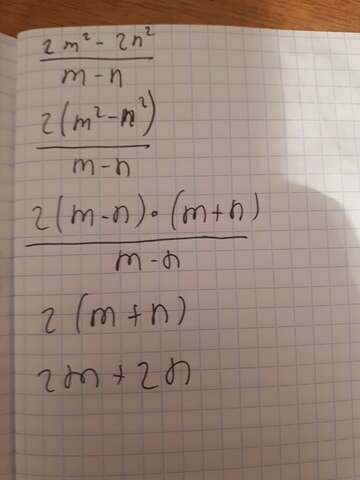 2m² - 2n²
m - n
2(m² - n²)
m - n
2(m - n) · (m + n)
m - n
2(m + n)
2m + 2n